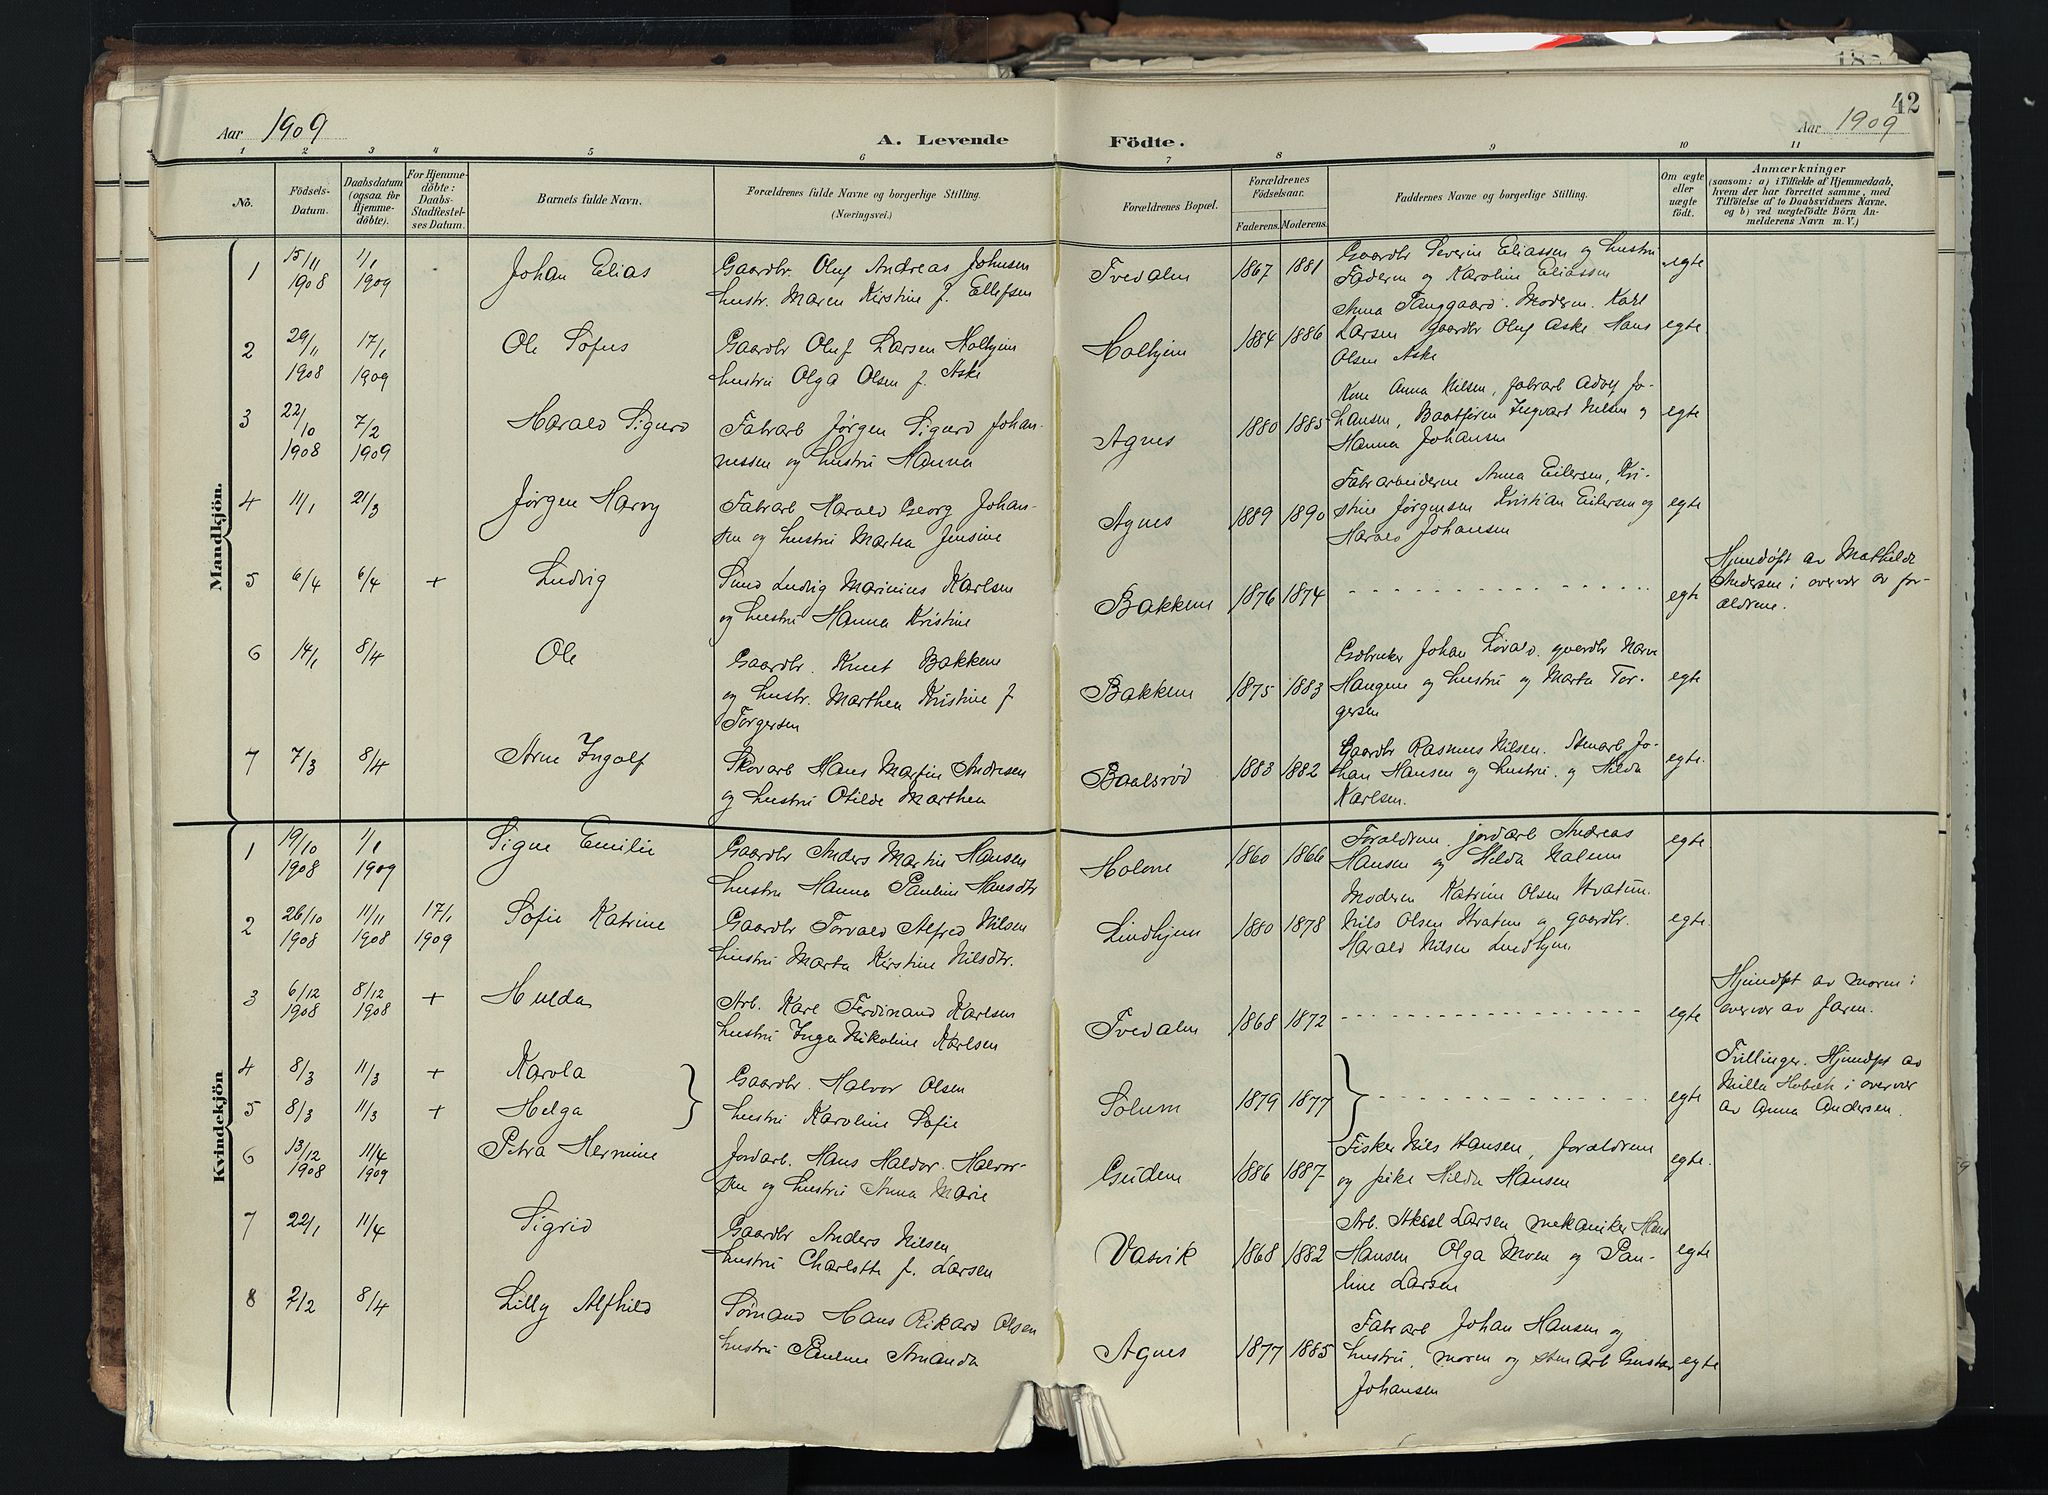 42
Aar 1909 A. Levende Födte. Aar 1909
1 2 3 4 5 6 7 8 9 10 11
No.
Födsels-Datum.
Daabsdatum (ogsaa for Hjemmedöbte).
For Hjemmedöbte: Daabs-Stadfæstelses Datum.
Barnets fulde Navn.
Forældrenes fulde Navne og borgerlige Stilling. (Næringsvei.)
Forældrenes Bopæl.
Forældrenes Födselsaar.
Faderens. Moderens.
Faddernes Navne og borgerlige Stilling.
Om ægte eller uægte födt.
Anmærkninger
(saasom: a) i Tilfælde af Hjemmedaab,
hvem der har forrettet samme, med
Tilföielse af to Daabsvidners Navne.
og b) ved uægtefödte Börn Anmelderens Navn m. V.)
Mandkjön.
1 15/11 1908 1/1 1909 Johan Elias
Gaardbr. Oluf Andreas Johnsen
hustr. Maren Kirstine f. Ellefsen
Tvedalen 1867 1881
Gaardbr Severin Eliassen og hustru
Faderen og Karoline Eliassen
egte
2 29/11 1908 17/1 1909 Ole Sofus
Gaardbr Oluf Larsen Holhjem
hustru Olga Olsen f. Aske
Holhjem 1884 1886
Anna Tanggaard. Moderen. Karl
Larsen gaardbr Oluf Aske Hans
Olsen Aske
egte
3 22/10 1908 7/2 1909 Harald Sigurd
Fabrarb Jørgen Sigurd Johannessen og hustru Hanna
Agnes 1880 1885
Kone Anna Nilsen, fabrarb Adolf Johansen, Baatfører Ingvart Nilsen og
Hanna Johansen
egte
4 11/1 21/3 Jørgen Harry
Fabrarb Harald Georg Johansen og hustru Martha Jensine
Agnes 1889 1890
Fabrarbeiderne Anna Eilersen, Kristine Jørgensen Kristian Eilersen og
Harald Johansen
egte
5 6/4 6/4 + Ludvig
Smed Ludvig Marinius Karlsen
og hustru Hanna Kristine
Bakkene 1876 1874 egte
Hjemdøpt av Mathilde
Andersen i overvær av forældrene.
6 14/1 8/4 Ole
Gaardbr. Knut Bakkene
og hustr. Marthea Kristine f
Torgersen
Bakkene 1875 1883
Gdbruker Johan Løvald. gaardbr
Haugene og hustru og Marta Torgersen
egte
7 7/3 8/4 Arne Ingolf
Skovarb Hans Martin Andresen
og hustru Otilde Marthea
Baalsrød 1883 1882
Gaardbr Rasmus Nilsen. Stenarb Johan Hansen og hustru. og Hilda
Karlsen.
egte.
Kvindekjön
1 19/10 1908 1/1 1909 Signe Emilie
Gaardbr Anders Martin Hansen
hustru Hanna Pauline Hansdtr
Holene 1860 1866
Forældrene. jordarb Andreas
Hansen og Hilda Nalum
egte
2 26/10 1908 11/11 1908 17/1 1909 Sofie Katrine
Gaardbr Torvald Alfred Nilsen
hustru Marta Kirstine Nilsdtr.
Lindhjem 1880 1878
Moderen Katrine Olsen Hvatum.
Nils Olsen Hvatum og gaardbr.
Harald Nilsen Lindhjem
egte.
3 6/12 1908 8/12 1908 + Hulda
Arb. Karl Ferdinand Karlsen
hustru Inga Nikoline Karlsen
Tvedalen 1868 1872 egte
Hjemdøpt av moren i
overvær av faren.
4 8/3 11/3 + Karola
5 8/3 11/3 + Helga
Gaardbr. Halvor Olsen
hustru Karoline Sofie
Solum 1879 1877 egte
Tvillinger. Hjemdøpt av
Milla Hobæk i overvær
av Anna Andersen.
6 13/12 1908 11/4 1909 Petra Hermine
Jordarb. Hans Haldor. Halvorsen og hustru Anna Marie
Guden 1886 1887
Fisker Nils Hansen, forældrene
og pike Hilda Hansen
egte.
7 22/1 11/4 Sigrid
Gaardbr Anders Nilsen
hustru Charlotte f. Larsen
Vasvik 1868 1882
Arb. Aksel Larsen mekaniker Hans
Hansen Olga Moen og Pauline Larsen
egte
8 2/2 8/4 Lilly Alfhild
Sømand Hans Rikard Olsen
hustru Pauline Amanda
Agnes 1877 1885
Fabrarb Johan Hansen og
hustru, moren og stenarb Gustav
Johansen
egte